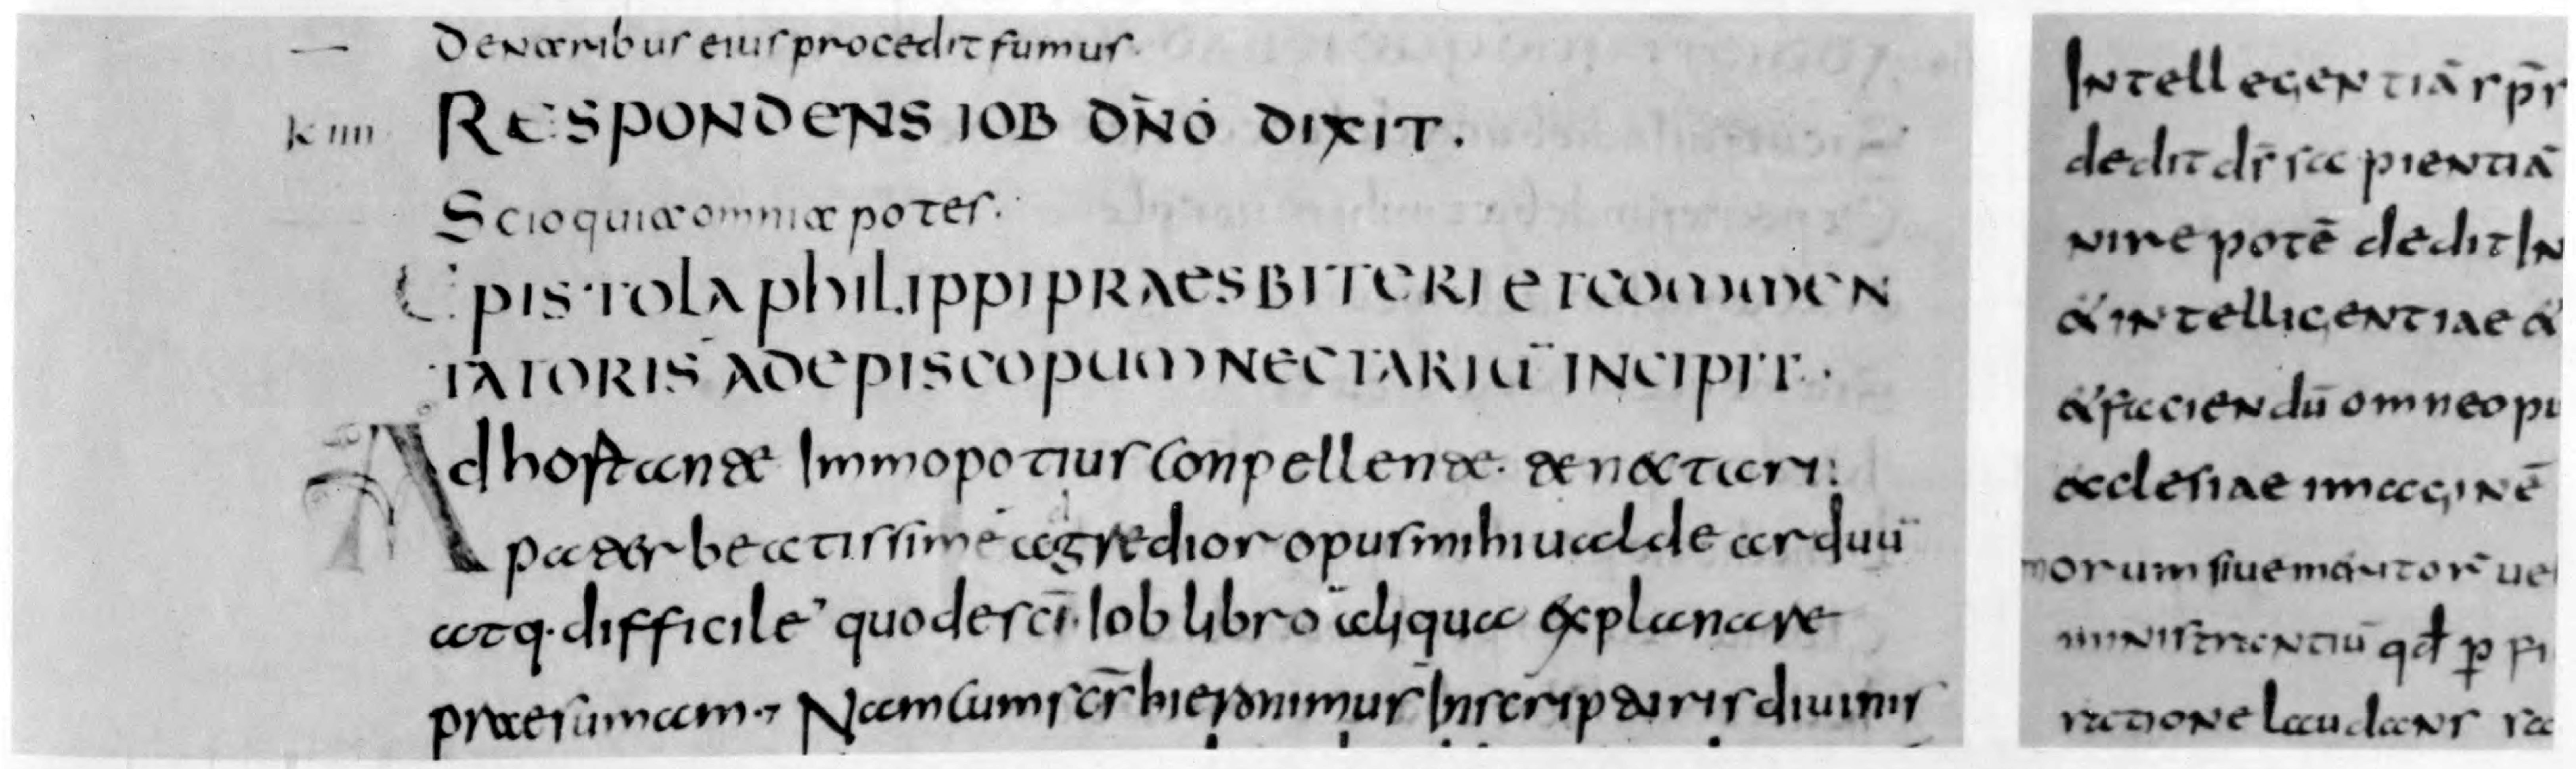 De naribus eius procedit fumus.
k iiii
RESPONDENS IOB DN̄O DIXIT.
Scio quia omnia potes.
EPISTOLA PHILIPPI PRAESBITERI ET COMMEN
TATORIS AD EPISCOPUM NECTARIŪ INCIPIT.
Adhostante Immo potius Conpellente. &
pater beatissime aggredior opus mihi ualde arduū
atq· difficile quod e scī Iob libro aliqua explanare
praesumam. Nam Cum sc̄s hieronimus In scripturis diuinis
Intellegentiā
dedit ds̄ sapientiā
nire potē dedit In
& intelligentiae &
& faciendū omne opu
ecclesiae imaginē
orum siue
ministrantiū qđ ꝑ
ratione laudans sa